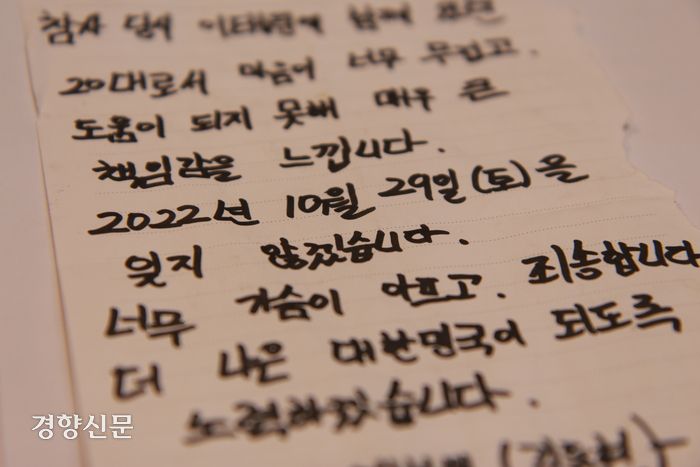 참사 당시 이태원에 함께 했던
20대로서 마음이 너무 무겁고.
도움이 되지 못해 매우 큰
책임감을 느낍니다.
2022년 10월 29일(토)을
잊지 않겠습니다.
너무 가슴이 아프고. 죄송합니다
더 나은 대한민국이 되도록
노력하겠습니다.
경향신문